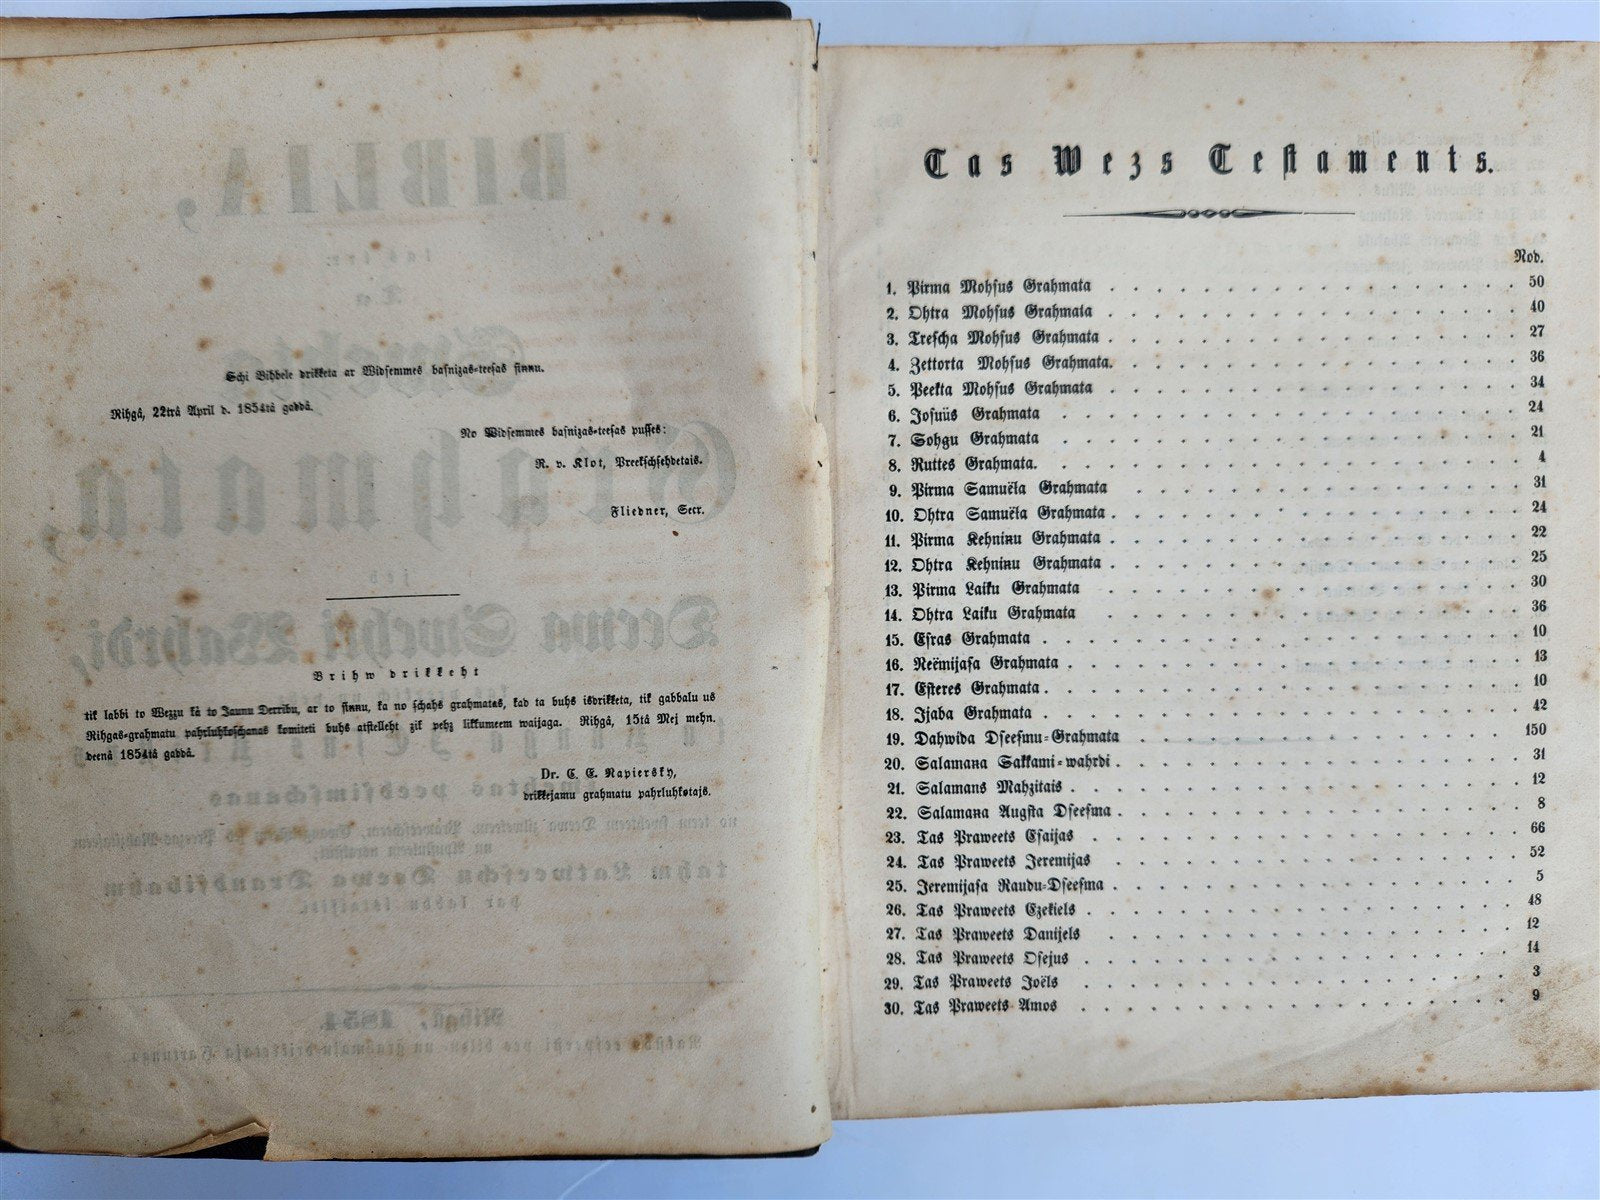 Schi Bihbele drikketa ar Widsemmes basnizas-teesas sinnu.
Rihgâ, 22trâ April d. 1854tâ gaddâ.
No Widsemmes basnizas-teesas pusses:
R. v. Klot, Preekschsehdetais.
Fliedner, Secr.
Brihw drikkeht
tik labbi to Wezzu kâ to Jaunu Derribu, ar to sinnu, ka no schahs grahmatas, kad ta buhs isdrikketa, tik gabbalu us
Rihgas-grahmatu pahrluhkoschanas komiteti buhs atstelleht zik pehz likkumeem waijaga. Rihgâ, 15tâ Mej mehn.
deenâ 1854tâ gaddâ.
Dr. C. E. Napiersky,
drikkejamu grahmatu pahrluhkotajs.
Tas Wezs Testaments.
Nod.
1. Pirma Mohsus Grahmata 50
2. Ohtra Mohsus Grahmata 40
3. Trescha Mohsus Grahmata 27
4. Zettorta Mohsus Grahmata. 36
5. Peekta Mohsus Grahmata 34
6. Josuüs Grahmata 24
7. Sohgu Grahmata 21
8. Ruttes Grahmata. 4
9. Pirma Samuëla Grahmata 31
10. Ohtra Samuëla Grahmata 24
11. Pirma Kehninu Grahmata 22
12. Ohtra Kehninu Grahmata 25
13. Pirma Laiku Grahmata 30
14. Ohtra Laiku Grahmata 36
15. Esras Grahmata 10
16. Neëmijasa Grahmata 13
17. Esteres Grahmata 10
18. Ijaba Grahmata 42
19. Dahwida Dseesmu-Grahmata 150
20. Salamana Sakkami-wahrdi 31
21. Salamans Mahzitais 12
22. Salamana Augsta Dseesma 8
23. Tas Praweets Esaijas 66
24. Tas Praweets Jeremijas 52
25. Jeremijasa Raudu-Dseesma 5
26. Tas Praweets Ezekiels 48
27. Tas Praweets Danijels 12
28. Tas Praweets Osejus 14
29. Tas Praweets Joëls 3
30. Tas Praweets Amos 9